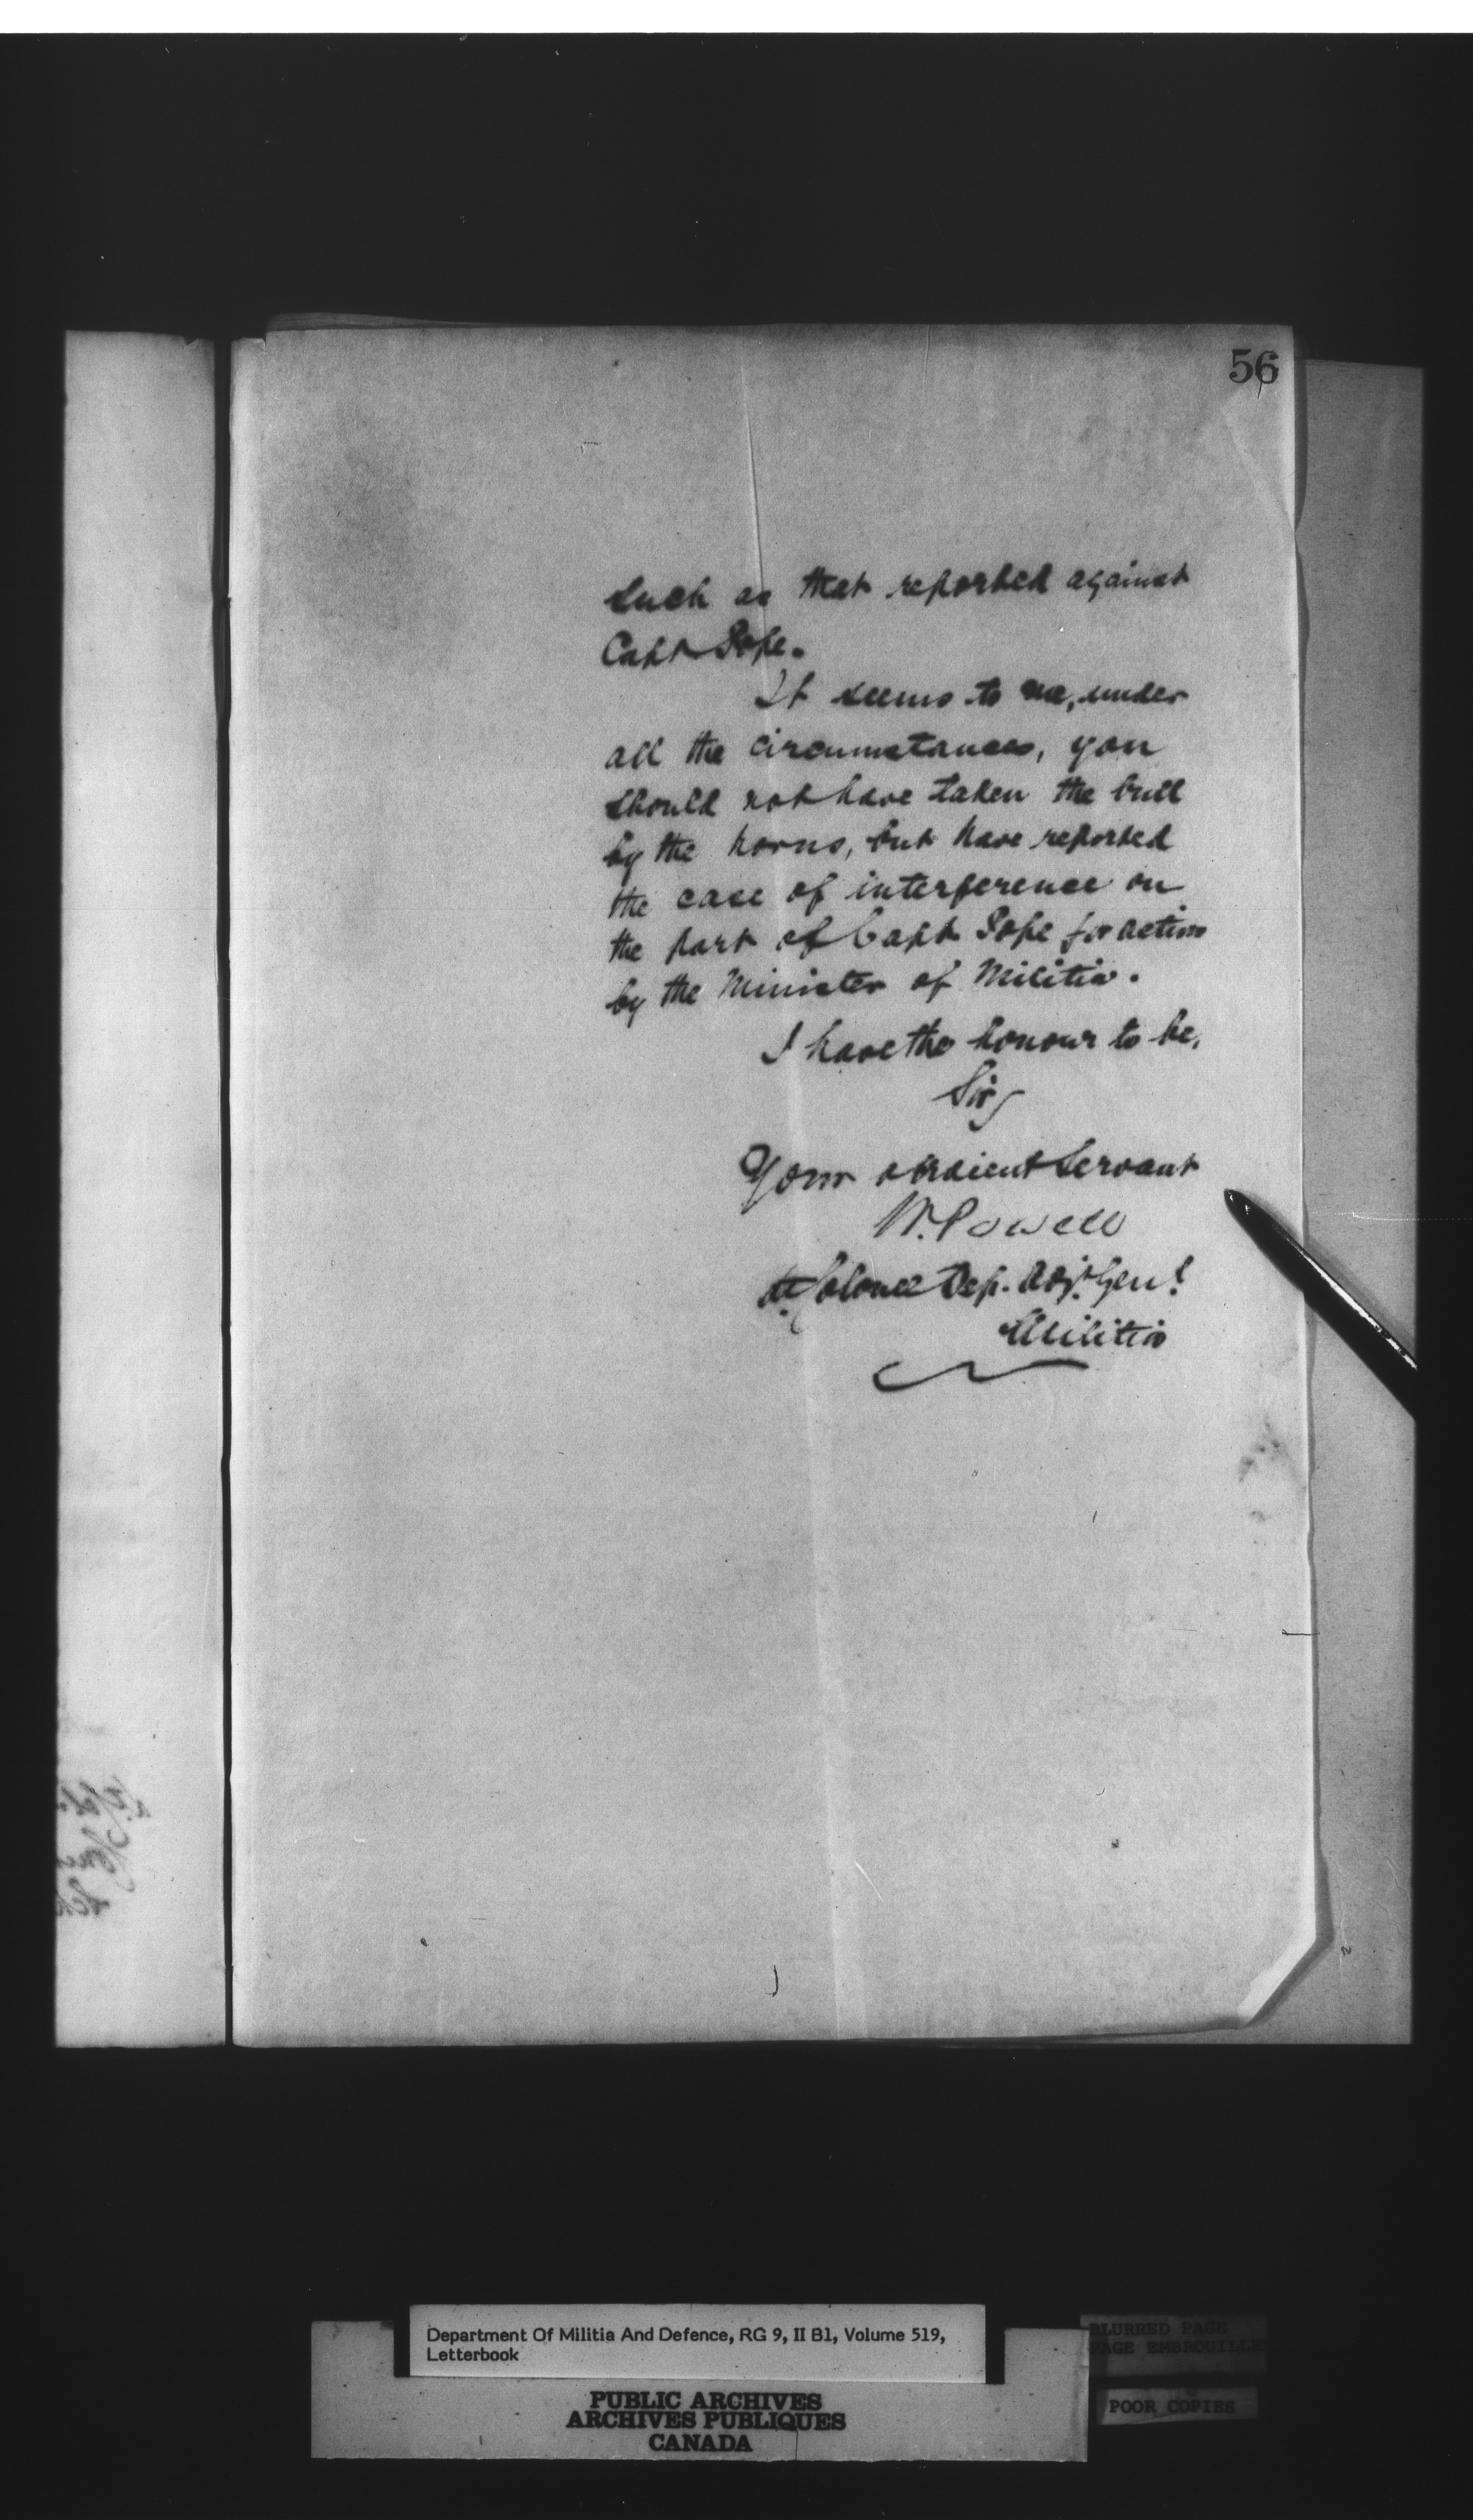 56
such as that reported against
Capt Pope.
It seems to me, under
all the circumstances, you
should not have taken the bull
by the horns, but have reported
the case of interference on
the part of Capt Pope for action
by the Minister of Militia.
I have the honour to be,
Sir,
Your obedient Servant
W. Powell
Lt. Colonel Dep. Adj. Genl
Militia
Department Of Militia And Defence, RG 9, II B1, Volume 519,
Letterbook
PUBLIC ARCHIVES
ARCHIVES PUBLIQUES
CANADA
BLURRED PAGE
PAGE EMBROUILLE
POOR COPIES